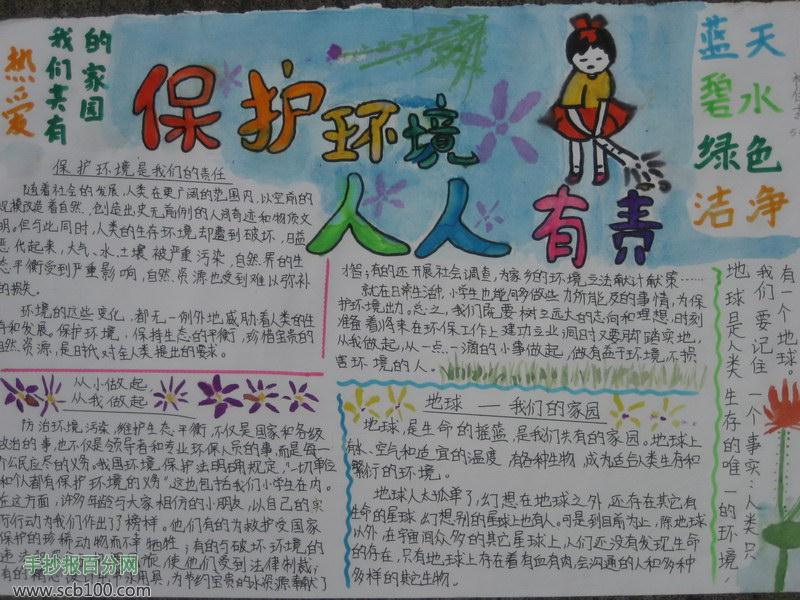 热爱
我们共有
的家园
保护环境
人人有责
蓝天
碧水
绿色
洁净
保护环境是我们的责任
随着社会的发展,人类在更广阔的范围内,以空前的
规模改造着自然,创造出史无前例的人间奇迹和物质文
明,但与此同时,人类的生存环境却遭到破坏,日益
恶化起来,大气、水、土壤被严重污染,自然界的生
态平衡受到严重影响,自然资源也受到难以弥补
的损失。
环境的这些变化,都无一例外地威胁着人类的生
存和发展。保护环境,保持生态的平衡,珍惜宝贵的
自然资源,是时代对全人类提出的要求。
从小做起,
从我做起
防治环境污染,维护生态平衡,不仅是国家和各级
政治的事,也不仅是领导者和专业环保人员的事,而是每一
个公民应尽的义务。我国环境保护法明确规定,“一切单位
和个人都有保护环境的义务”这也包括我们小学生在内。
在这方面,许多年龄与大家相仿的小朋友,以自己的实
际行动为我们作出了榜样。他们有的为救护受国家
保护的珍稀动物而不牺牲;有的与破坏环境的
使他们受到法律制裁;
用具,为节约宝贵的水资源奉献了
才智;有的还开展社会调查,为家乡的环境立法献计献策……
就在日常生活中,小学生也能何多做些力所能及的事情,为保
护环境出力。总之,我们既要树立远大的志向和理想,时刻
准备着将来在环保工作上建功立业,同时又要脚踏实地,
从我做起,从一点一滴的小事做起,做有益于环境,不损
害环境的人。
地球——我们的家园
地球,是生命的摇篮,是我们共有的家园。地球上
有水、空气和适宜的温度,有各种生物,成为适合人类生存和
繁衍的环境。
地球人太孤单了,幻想在地球之外,还存在其它有
生命的星球,幻想别的星球上也有人。可是到目前为止,除地球
以外,在宇宙间众多的其它星球上,人们还没有发现生命
的存在,只有地球上存在着有血有肉,会沟通的人和多种
多样的其它生物。
有一个地球。
我们要记住一个事实:人类只
地球是人类生存的唯一的环境,
手抄报百分网
www.scb100.com